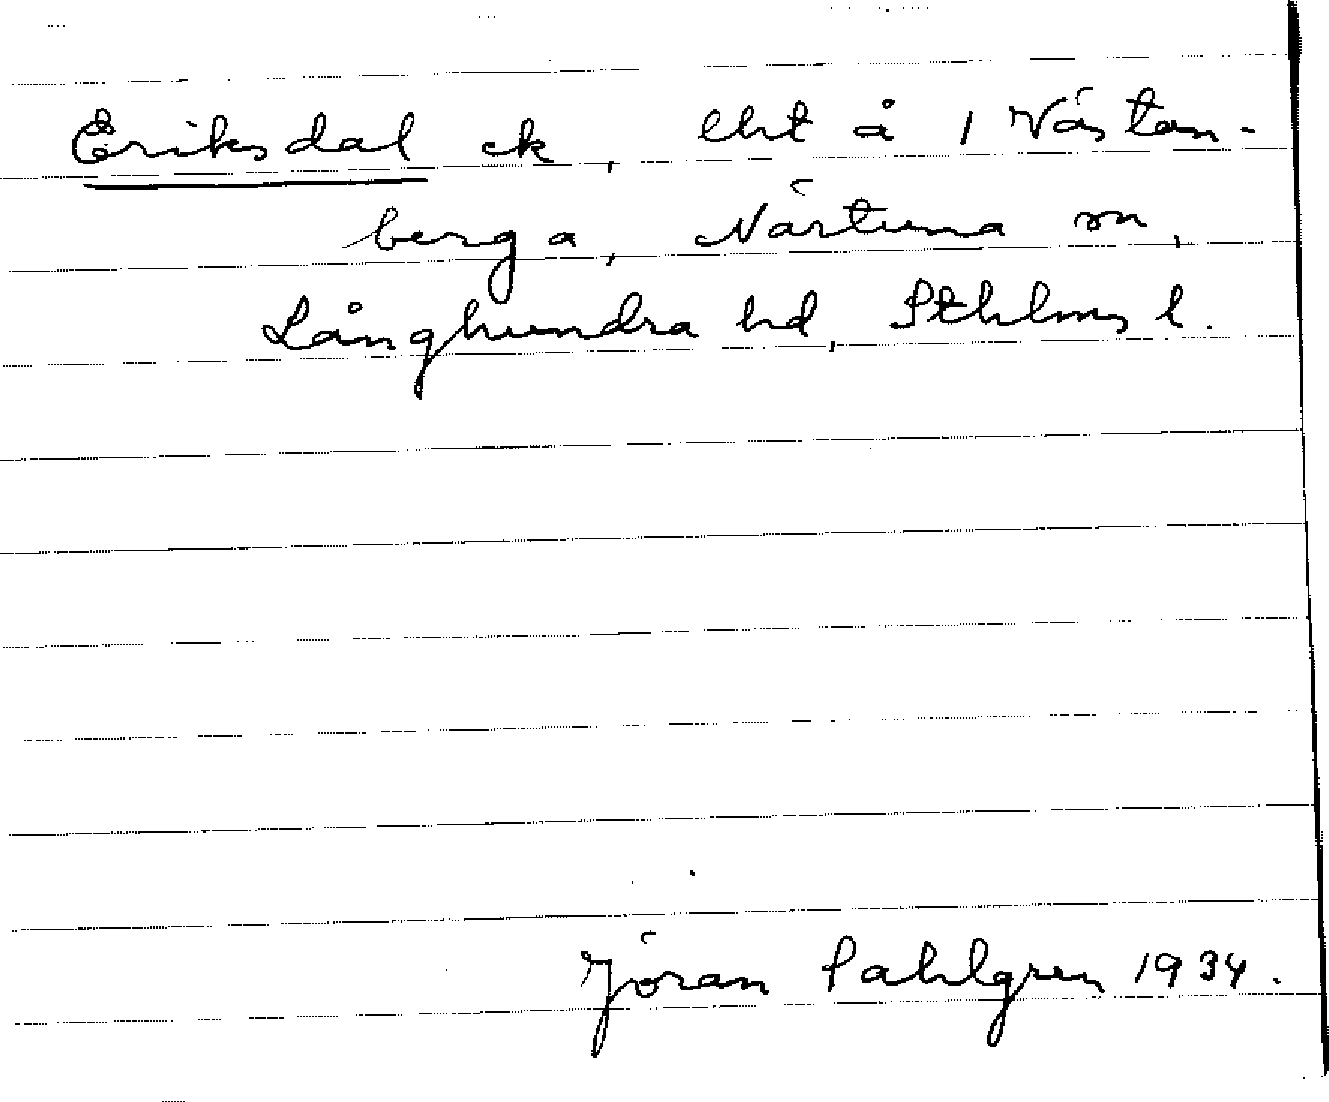 Eriksdal ck, lht å 1 Västan-
berga, Närtuna sn,
Långhundra hd, Sthlms l.
Jöran Sahlgren 1934.